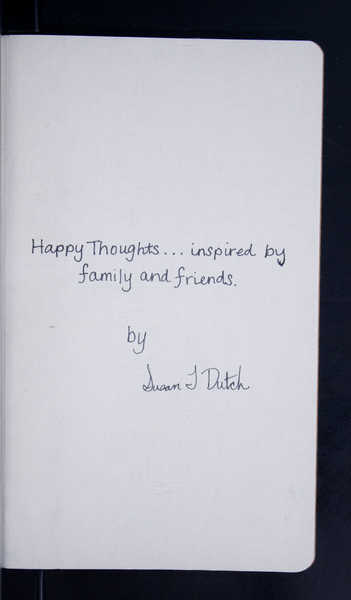 Happy Thoughts... inspired by
family and friends.
by
Susan J Dutch